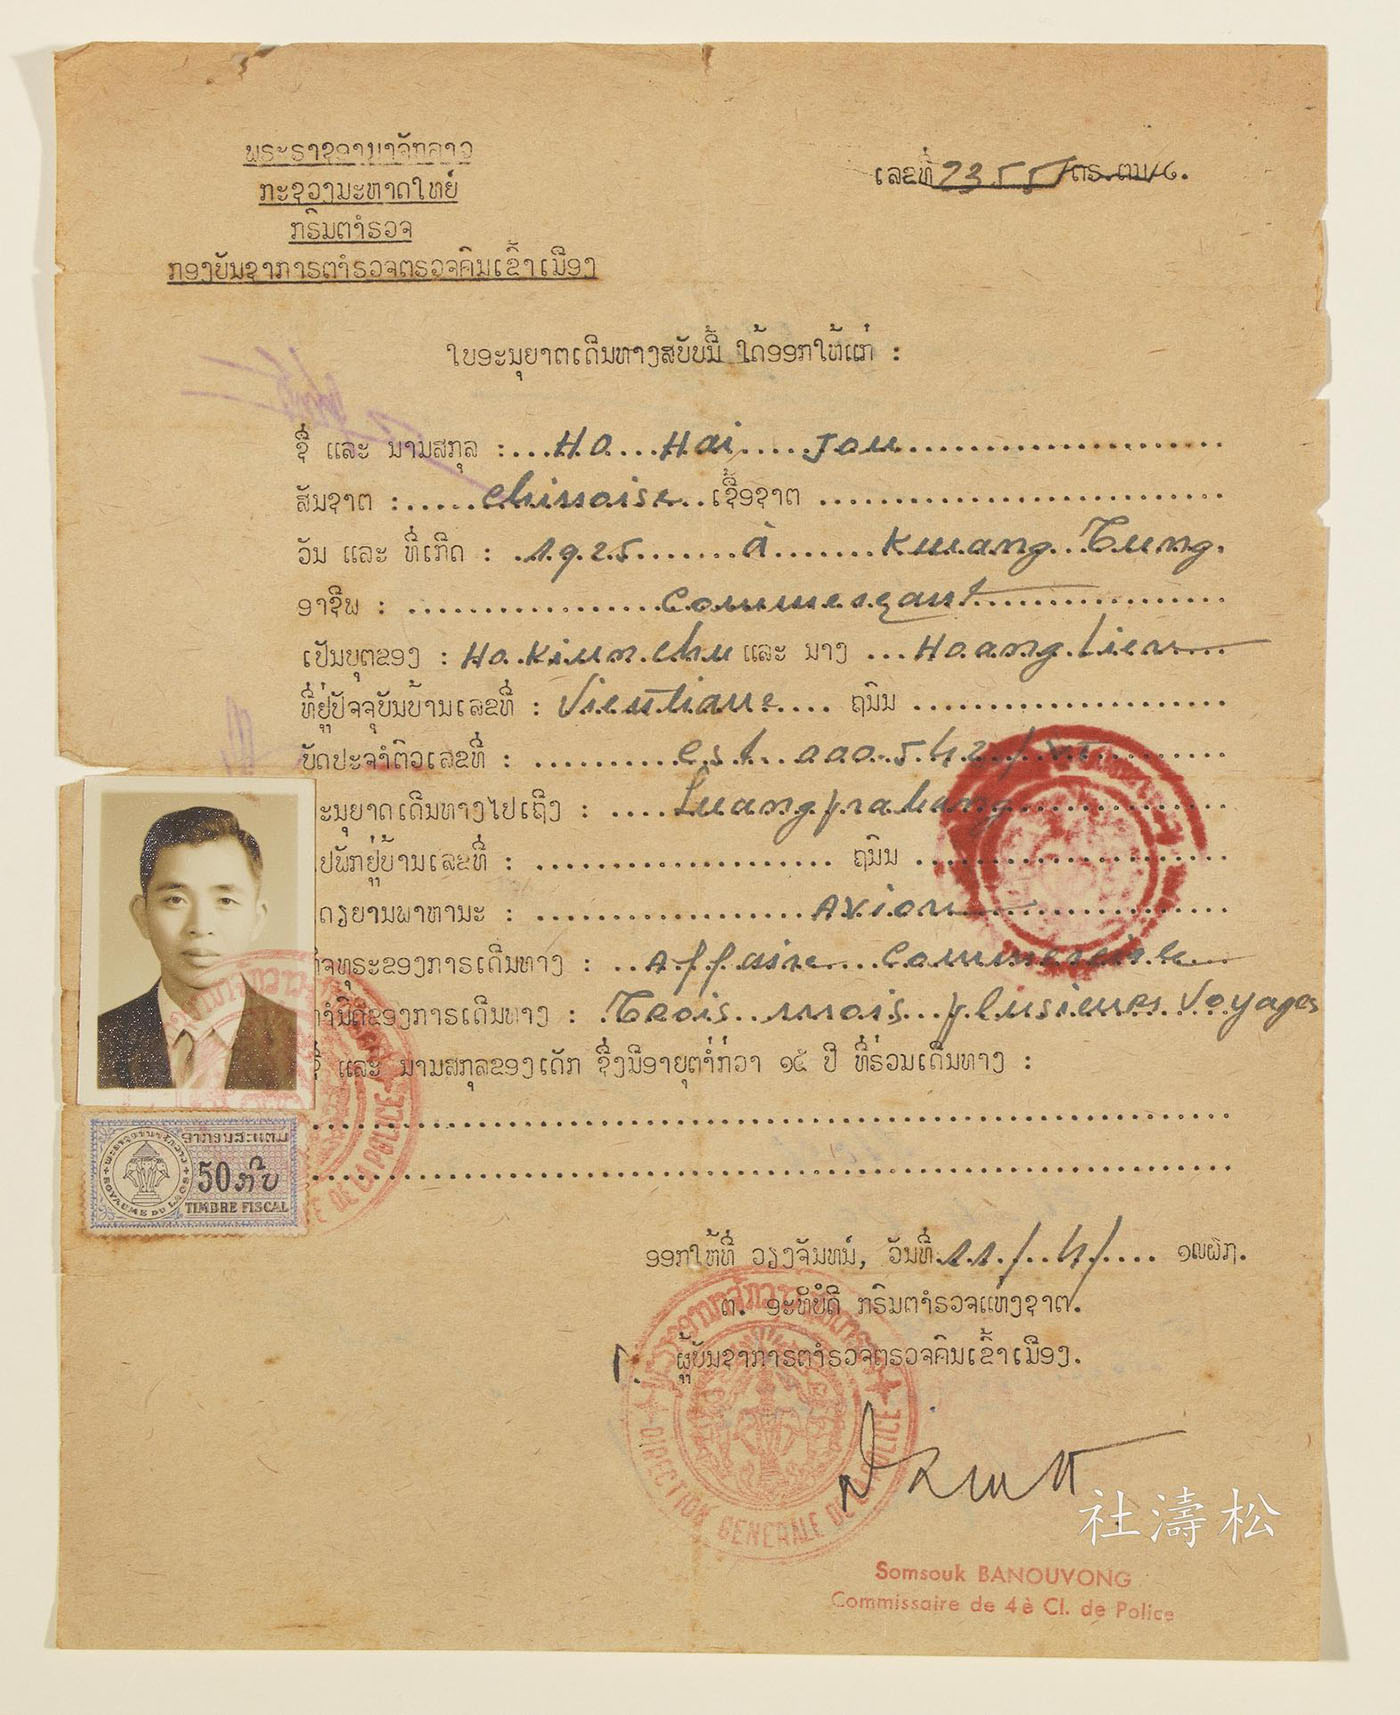 ພຣະຣາຊອານາຈັກລາວ
ກະຊວງມະຫາດໄທຍ໌
ກຣົມຕຳຣວຈ
ກອງບັນຊາການຕຳຣວຈຕຣວຈຄົນເຂົ້າເມືອງ
ເລຂທີ່ 2355/ຕຣ.ຕມ/6.
ໃບອະນຸຍາຕເດີນທາງສບັບນີ້ ໄດ້ອອກໃຫ້ແກ່ :
ຊື່ ແລະ ນາມສກຸລ : Ho Hai Jou
ສັນຊາຕ : Chinoise ເຊື້ອຊາຕ
ວັນ ແລະ ທີ່ເກີດ : 1925 à Kwang Tung.
ອາຊີພ : Commerçant
ເປັນບຸຕຂອງ : Ho Kiun Chu ແລະ ນາງ Hoang Lien
ທີ່ຢູ່ປັຈຈຸບັນບ້ານເລຂທີ່ : Vientiane ຖນົນ
ບັດປະຈຳຕົວເລຂທີ່ : est 000.542/
ະນຸຍາດເດີນທາງໄປເຖິງ : Luangprabang
ປພັກຢູ່ບ້ານເລຂທີ່ : ຖນົນ
ດຽຍານພາຫານະ : Avion
ິຈທຸຣະຂອງການເດີນທາງ : Affaire Commerciale
ຳນົດຂອງການເດີນທາງ : Trois mois plusieurs Voyages
ຊື່ ແລະ ນາມສກຸລຂອງເດັກ ຊຶ່ງມີອາຍຸຕ່ຳກ່ວາ ໑໕ ປີ ທີ່ຮ່ວມເດີນທາງ :
ອາກອນສະແຕມ
ພຣະຣາຊອານາຈັກລາວ
50 ກີບ
ROYAUME DU LAOS
TIMBRE FISCAL
DE LA POLICE
ອອກໃຫ້ທີ່ ວຽງຈັນທນ໌, ວັນທີ່ 11/4/
ຕ. ອະທິບໍດີ ກຣົມຕຳຣວຈແຫ່ງຊາຕ.
ຜູ້ບັນຊາການຕຳຣວຈຕຣວຈຄົນເຂົ້າເມືອງ.
DIRECTION GENERALE DE LA POLICE
社濤松
Somsouk BANOUVONG
Commissaire de 4è Cl. de Police